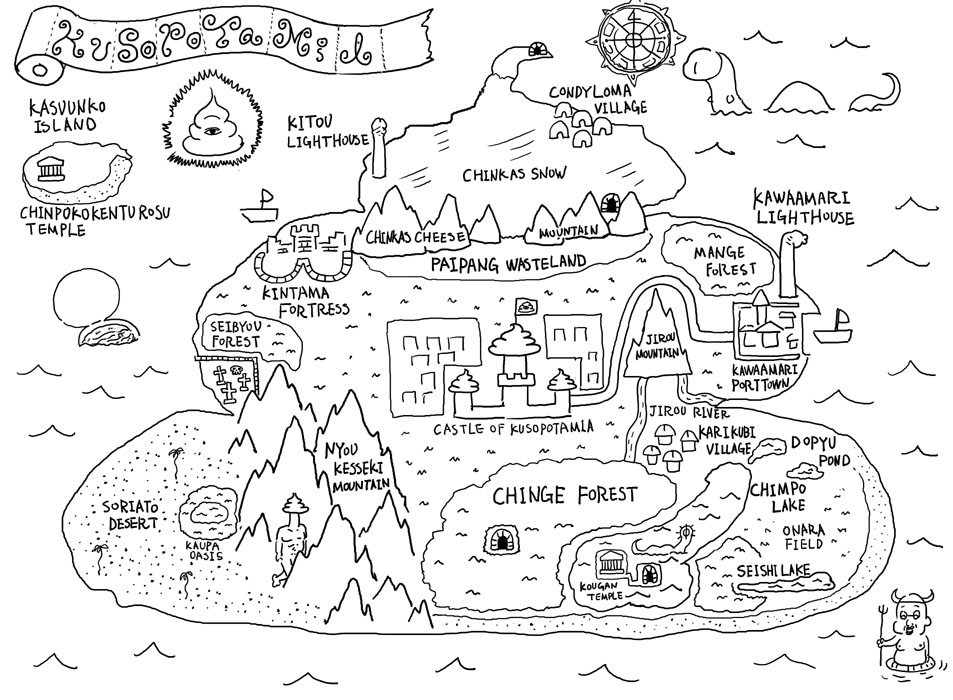 KuSoPoTaMiA
KASUUNKO
ISLAND
CHINPOKOKENTUROSU
TEMPLE
KITOU
LIGHTHOUSE
CONDYLOMA
VILLAGE
CHINKAS SNOW
KAWAAMARI
LIGHTHOUSE
CHINKAS CHEESE
MOUNTAIN
PAIPANG WASTELAND
MANGE
FOREST
KINTAMA
FORTRESS
SEIBYOU
FOREST
JIROU
MOUNTAIN
KAWAAMARI
PORTTOWN
CASTLE OF KUSOPOTAMIA
JIROU RIVER
KARIKUBI
VILLAGE
DOPYU
POND
NYOU
KESSEKI
MOUNTAIN
CHINGE FOREST
CHIMPO
LAKE
SORIATO
DESERT
KAUPA
OASIS
ONARA
FIELD
SEISHI LAKE
KOUGAN
TEMPLE